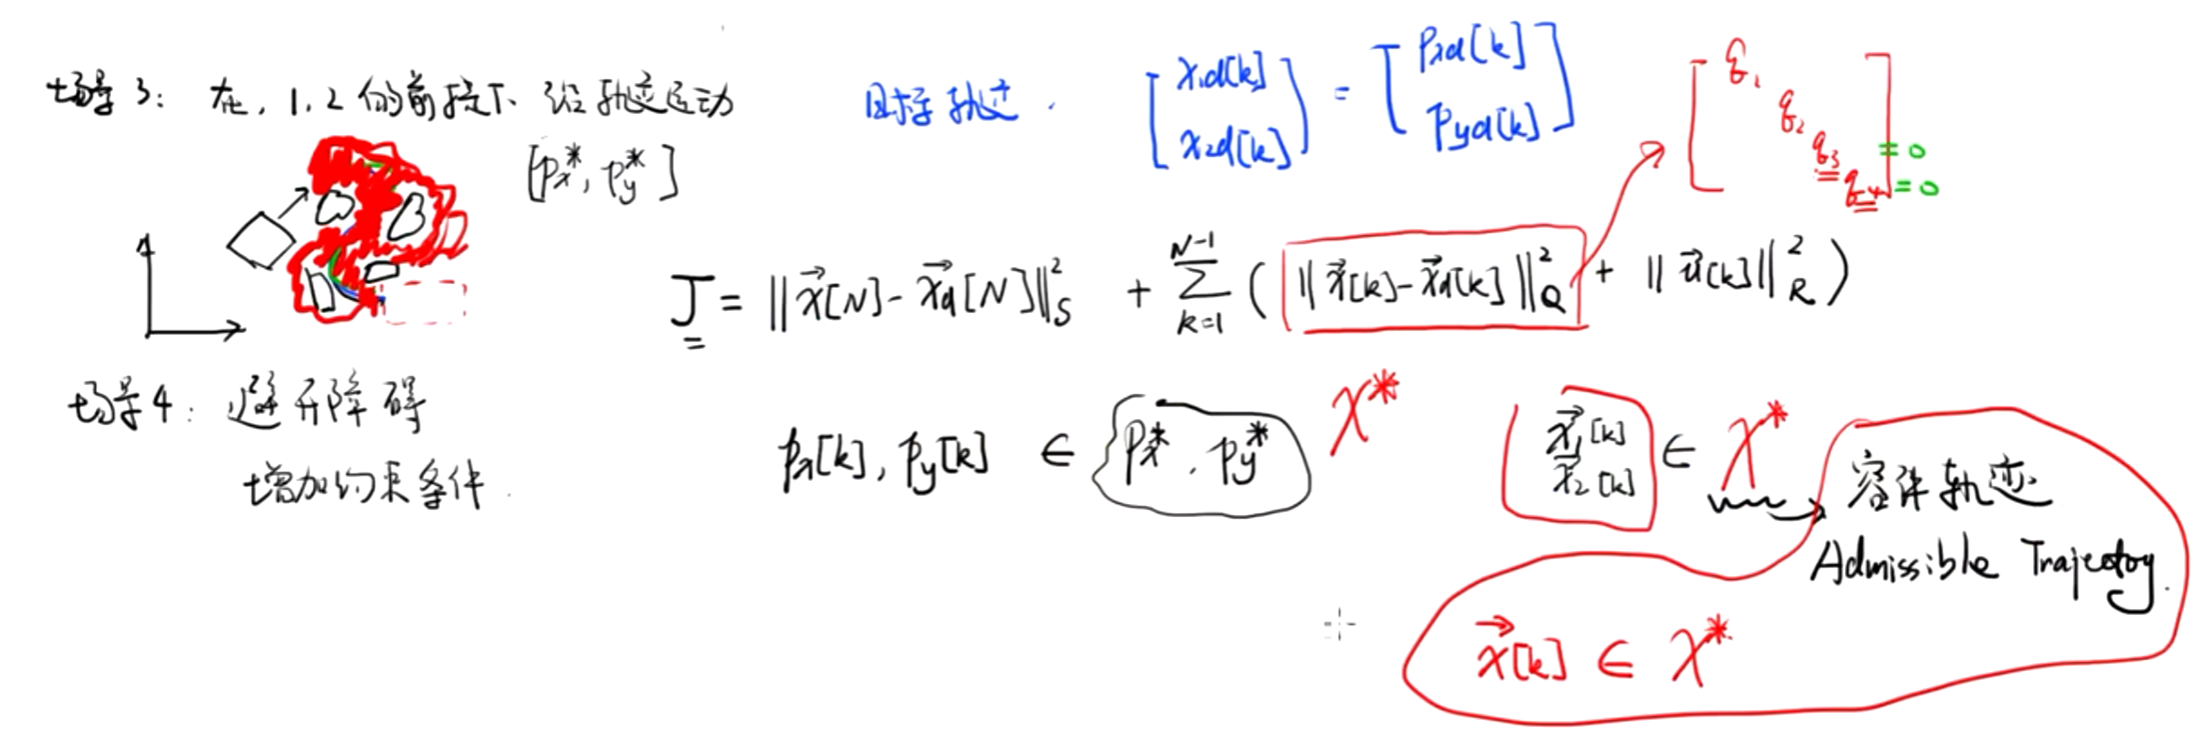 场景3: 在, 1, 2 的前提下, 沿轨迹运动
[px*, py*]
目标轨迹. [x1d[k] x2d[k]] = [pxd[k] pyd[k]]
[q1 q2 q3 q4] =0 =0
J = ||x⃗[N] - x⃗d[N]||²_S + Σ_{k=1}^{N-1} ( ||x⃗[k] - x⃗d[k]||²_Q + ||u⃗[k]||²_R )
场景4: 避开障碍
增加约束条件.
px[k], py[k] ∈ {px*, py*} X*
x⃗1[k] x⃗2[k] ∈ X* → 容许轨迹
Admissible Trajectory.
x⃗[k] ∈ X*